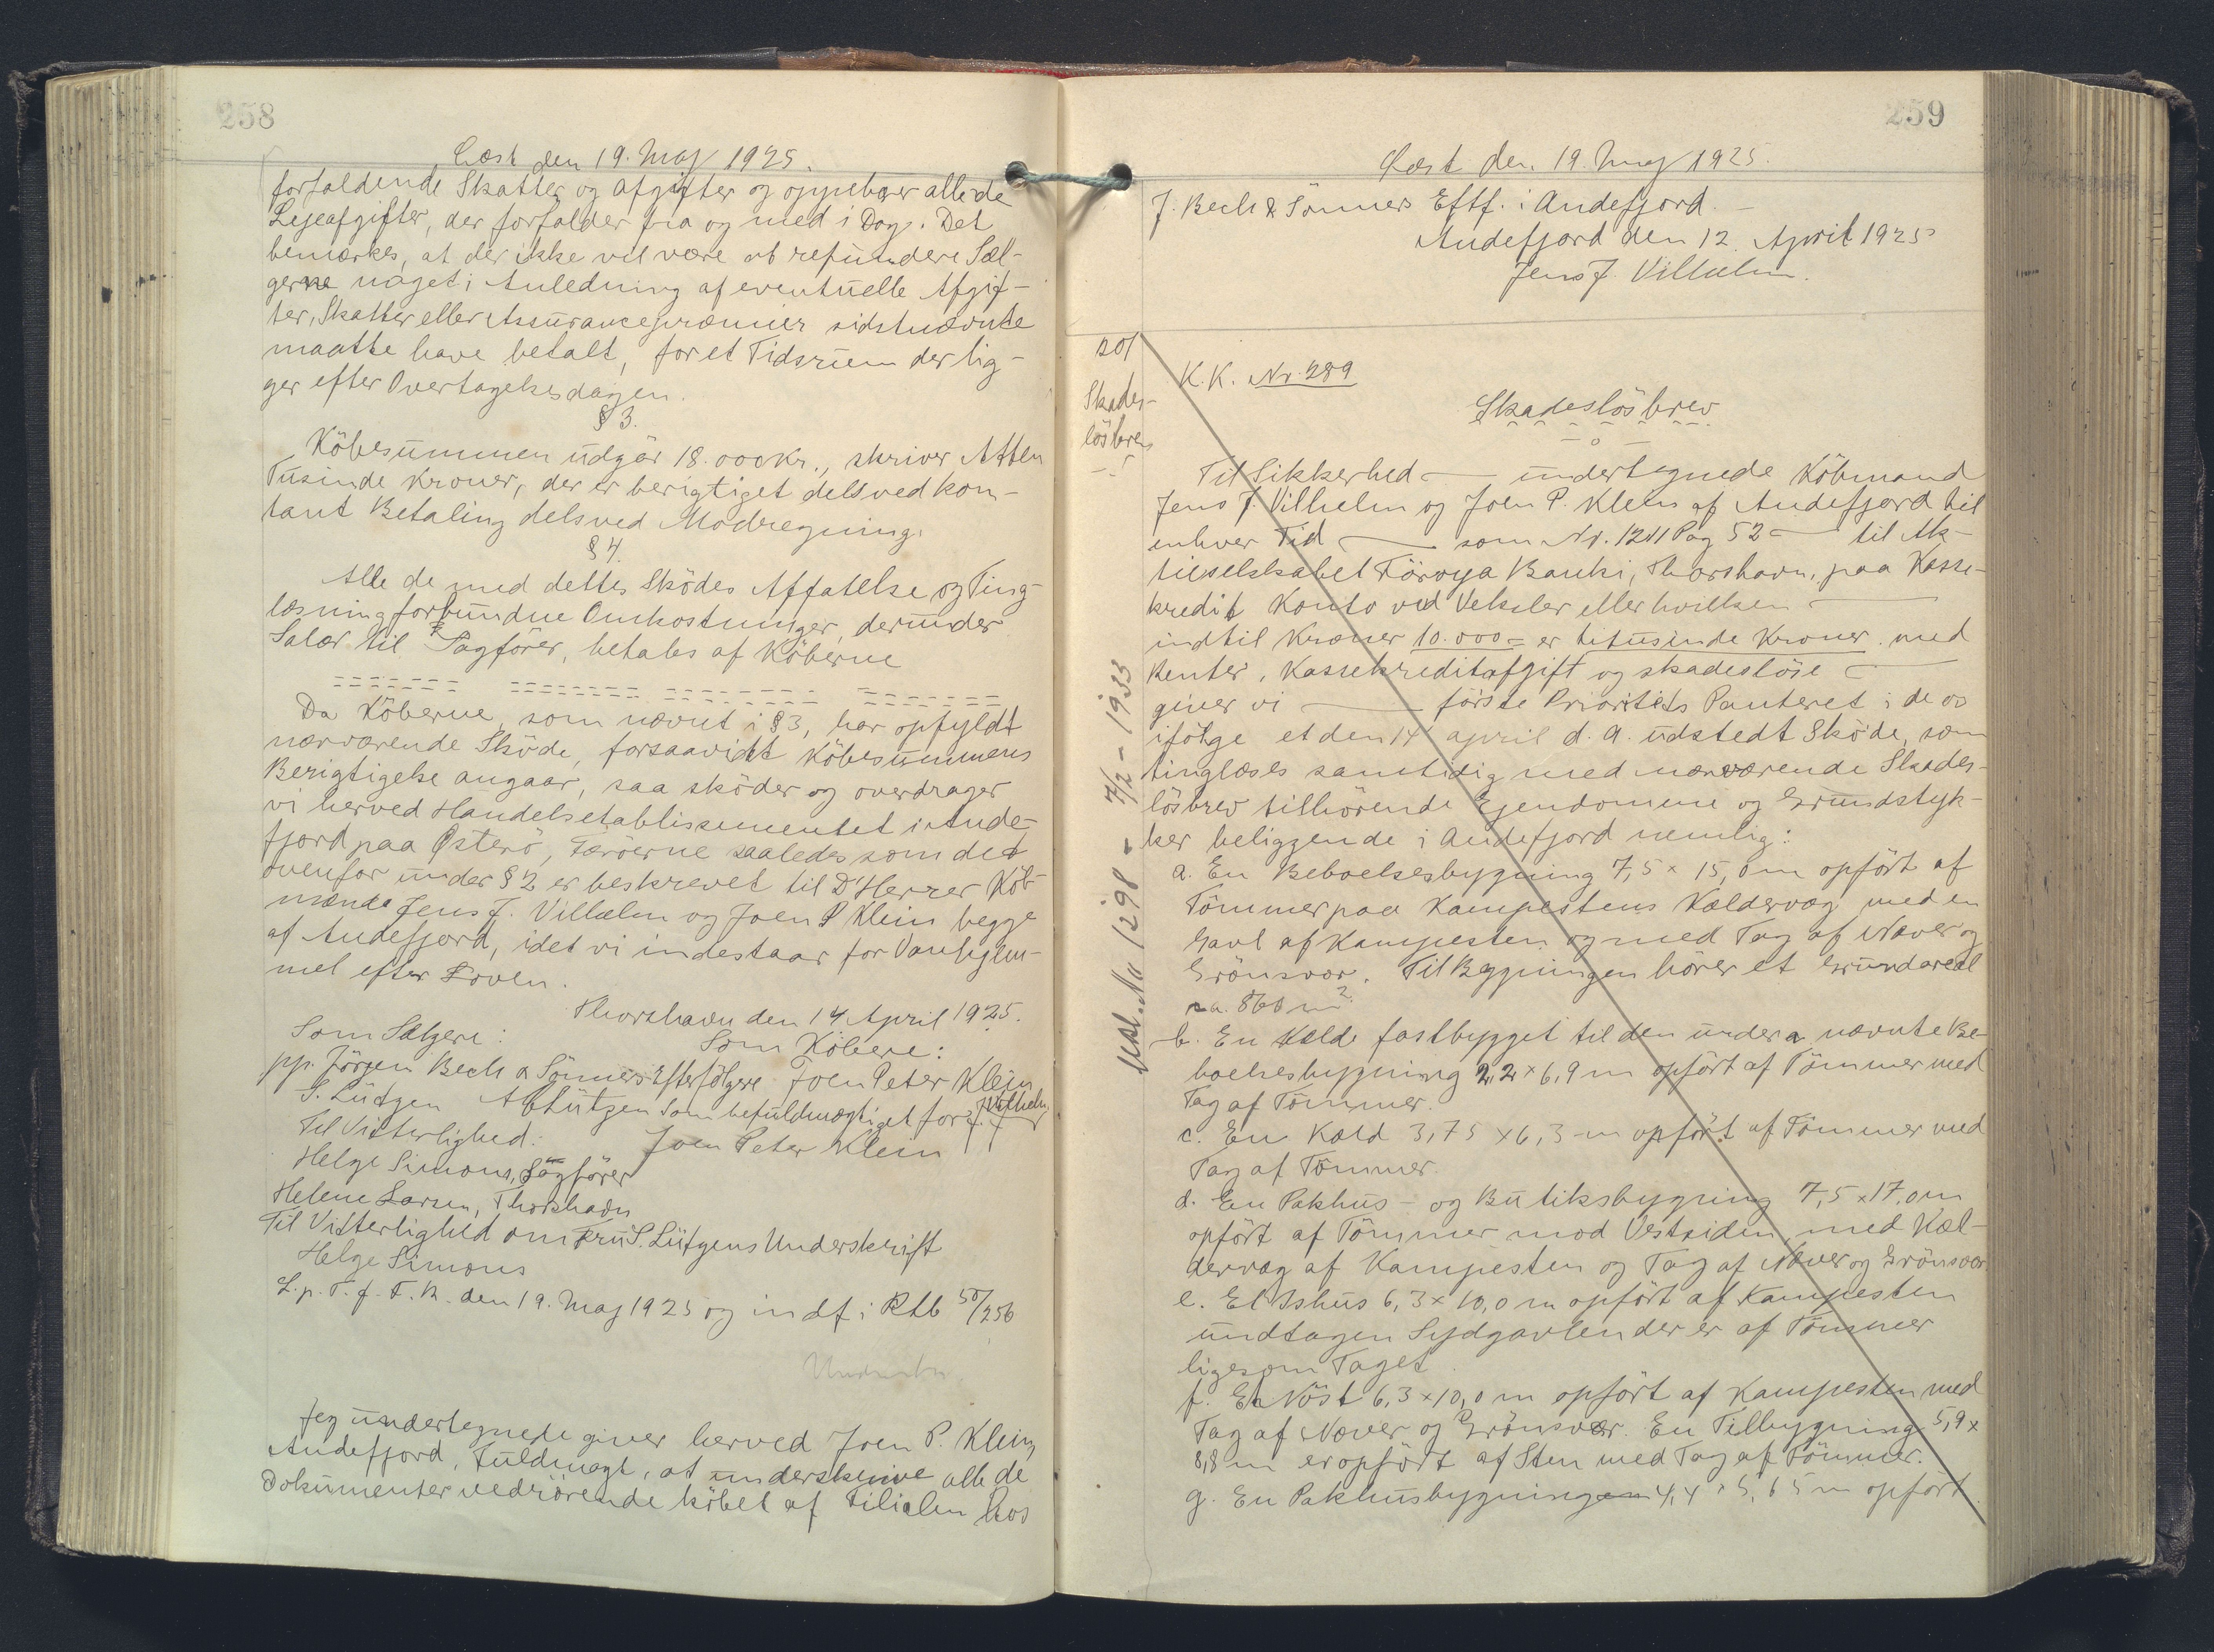 258
Læst den 19. Maj 1925.
forfaldende Skatter og Afgifter og oppebærer alle de
Lejeafgifter, der forfalder fra og med i Dag. Det
bemærkes, at der ikke vil være at refundere Sæl-
gerne noget i Anledning af eventuelle Afgif-
ter, Skatter eller Assurancepræmier sidstnævnte
maatte have betalt, for et Tidsrum der lig-
ger efter Overtagelsesdagen.
§ 3.
Köbesummen udgör 18.000 Kr., skriver Atten
Tusinde Kroner, der er berigtiget dels ved kon-
tant Betaling dels ved Modregning.
§ 4.
Alle de med dettes Sködes Affattelse og Ting-
læsning forbundne Omkostninger, derunder
Salær til Sagförer, betales af Köberne
Da Köberne, som nævnt i § 3, har opfyldt
nærværende Sköde, forsaavidt Köbesummens
Berigtigelse angaar, saa sköder og overdrager
vi herved Handelsetablissementet i Ande-
fjord paa Österö, Færöerne saaledes som det
ovenfor under § 2 er beskrevet til D'Herrer Köb-
mænd Jens J. Vilhelm og Joen P Klein begge
af Andefjord, idet vi indestaar for Vanhjem-
mel efter Loven.
Thorshavn den 14 April 1925.
Som Sælgere: Som Köbere:
pp. Jörgen Bech & Sönners Efterfölgere Joen Peter Klein
S. Lützen A Lützen Som befuldmægtiget for J. J. Vilhelm
Til Vitterlighed: Joen Peter Klein
Helge Simons, Sagförer
Helene Larsen, Thorshavn
Til Vitterlighed om Fru S. Lützens Underskrift
Helge Simons
L. p. T. f. F. R. den 19. Maj 1925 og indf i Rtb 50/256
Jeg undertegnede giver herved Joen P. Klein,
Andefjord, Fuldmagt, at underskrive alle de
Dokumenter vedrörende köbet af Filialen hos
259
Læst den 19. Maj 1925.
J. Bech & Sönners Eftf. i Andefjord. -
Andefjord den 12. April 1925
Jens J. Vilhelm.
201
Skades-
lösbrev
K.K. Nr. 289
Skadeslösbrev
Til Sikkerhed - undertegnede Köbmand
Jens J. Vilhelm og Joen P. Klein af Andefjord til
enhver Tid - som Nr. 1211 Pag 52 - til Ak-
tieselskabet Föroya Banki, Thorshavn, paa Kasse-
kredit Konto ved Veksler eller hvilken -
indtil Kroner 10.000 = er titusinde Kroner med
Renter, Kassekreditafgift og skadeslöse -
giver vi - förste Prioritets Panteret i de os
ifölge et den 14 april d. A. udstedt Sköde, som
tinglæses samtidig med nærværende Skades-
lösbrev tilhörende Ejendomme og Grundstyk-
ker beliggende i Andefjord nemlig:
a. En Beboelsesbygning 7,5 x 15,0 m opfört af
Tömmer paa Kampestens Kældervæg med en
Gavl af Kampesten og med Tag af Næver og
Grönsvær. Til Bygningen hörer et Grundareal
ca. 860 m².
b. En Kælde fastbygget til den under a nævnte Be-
boelsesbygning 2,2 x 6,9 m opfört af Tömmer med
Tag af Tömmer.
c. En Kæld 3,75 x 6,3 m opfört af Tömmer med
Tag af Tömmer.
d. En Pakhus- og Butiksbygning 7,5 x 17,0 m
opfört af Tömmer mod Vestsiden, med Kæl-
dervæg af Kampesten og Tag af Næver og Grönsvær
e. Et Ishus 6,3 x 10,0 m opfört af Kampesten
undtagen Sydgavlen der er af Tömmer
ligesom Taget.
f. En Nöst 6,3 x 10,0 m opfört af Kampesten med
Tag af Næver og Grönsvær. En Tilbygning 5,9 x
8,8 m er opfört af Sten med Tag af Tömmer.
g. En Pakhusbygning 4,4 x 5,65 m opfört
No 1298 - 7/2 - 1933